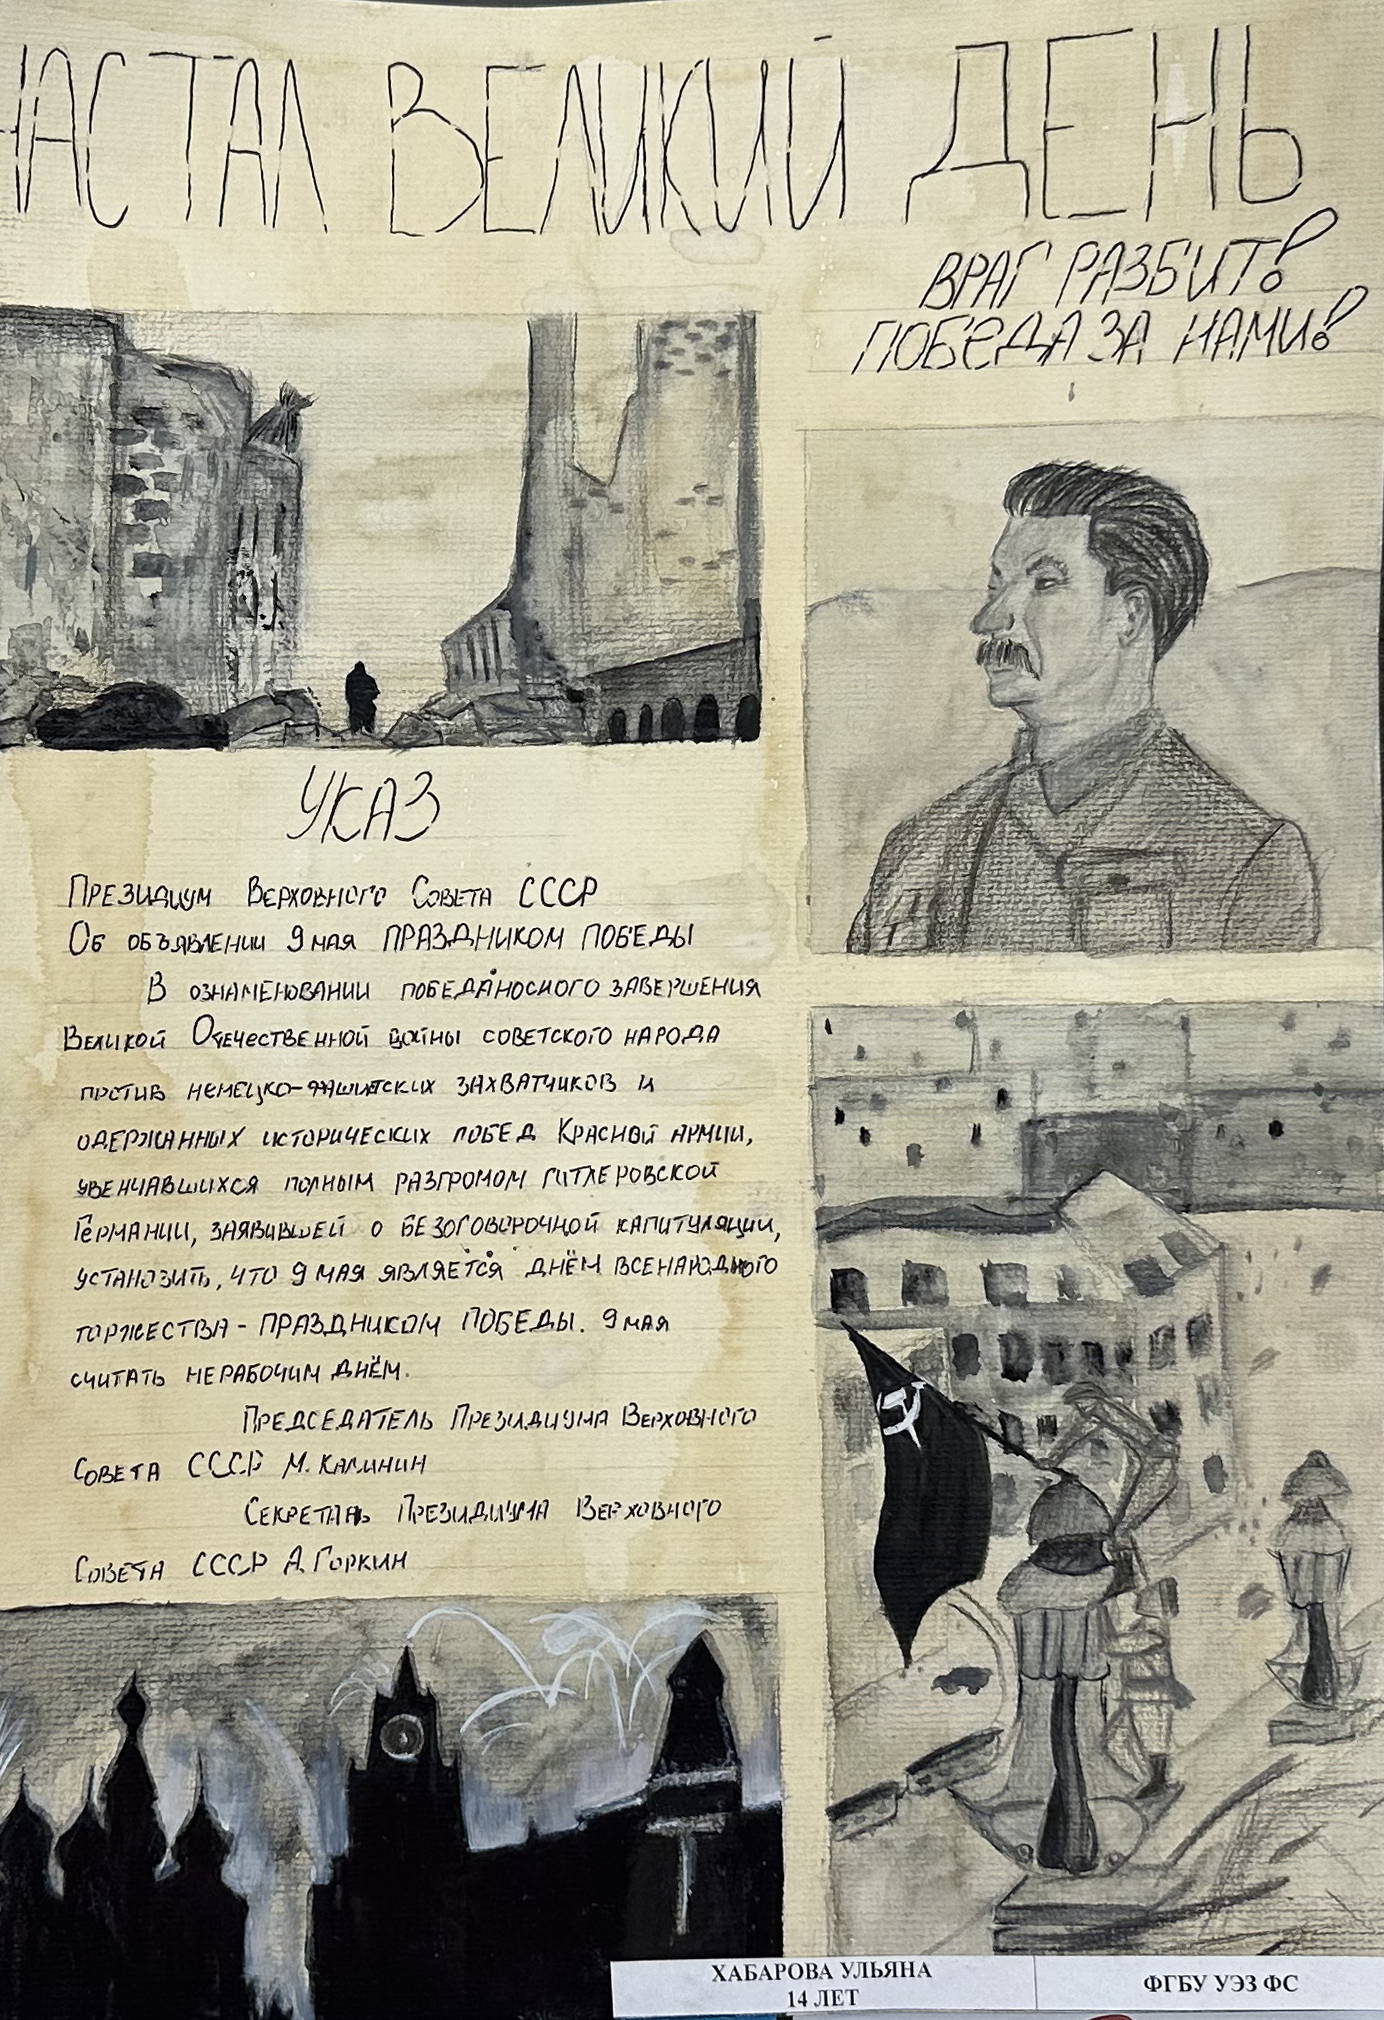 НАСТАЛ ВЕЛИКИЙ ДЕНЬ
ВРАГ РАЗБИТ!
ПОБЕДА ЗА НАМИ!
УКАЗ
Президиум Верховного Совета СССР
Об объявлении 9 мая ПРАЗДНИКОМ ПОБЕДЫ
В ознаменовании победаносного завершения
Великой Отечественной войны советского народа
против немецко-фашитских захватчиков и
одержанных исторических побед Красной армии,
увенчавшихся полным разгромом гитлеровской
Германии, заявившей о безоговорочной капитуляции,
установить, что 9 мая является днём всенародного
торжества - ПРАЗДНИКОМ ПОБЕДЫ. 9 мая
считать нерабочим днём.
Председатель Президиума Верховного
Совета СССР М. Калинин
Секретарь Президиума Верховного
Совета СССР А. Горкин
ХАБАРОВА УЛЬЯНА
14 ЛЕТ
ФГБУ УЭЗ ФС